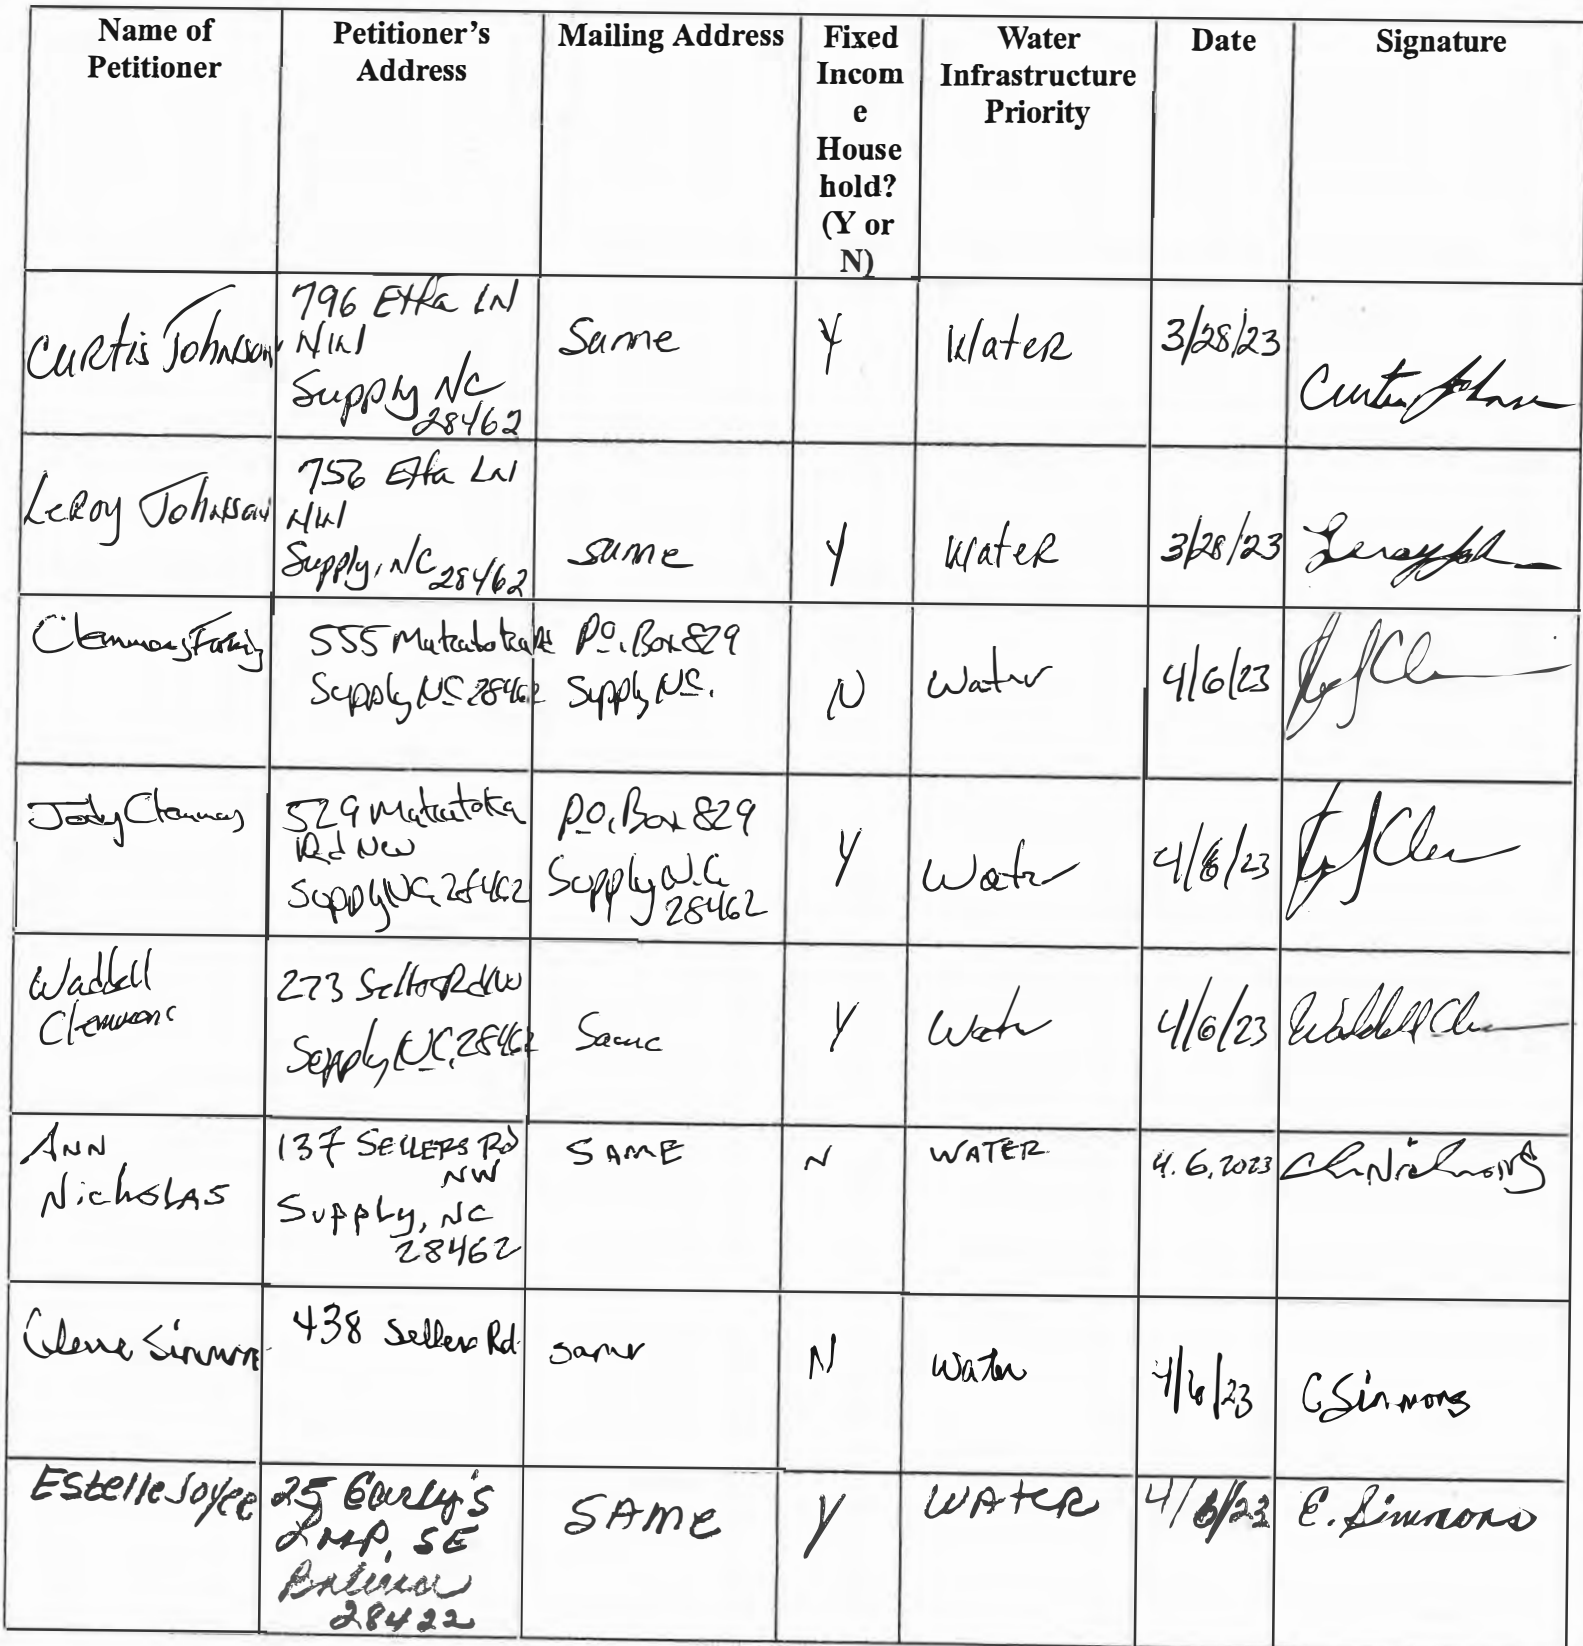 Name of Petitioner | Petitioner's Address | Mailing Address | Fixed Incom e House hold? (Y or N) | Water Infrastructure Priority | Date | Signature
Curtis Johnson | 796 Etta LN NW Supply NC 28462 | Same | Y | Water | 3/28/23 | Curtis Johnson
LeRoy Johnson | 756 Etta LN NW Supply, NC 28462 | same | Y | Water | 3/28/23 | Leroy Joh
Clemmons Family | 555 Makatoka Rd Supply NC 28462 | P.O. Box 829 Supply NC. | N | Water | 4/6/23
Jody Clemmons | 529 Makatoka Rd NW Supply NC 28462 | P.O. Box 829 Supply N.C. 28462 | Y | Water | 4/6/23
Waddell Clemmons | 273 Rd NW Supply, NC, 28462 | Same | Y | Water | 4/6/23 | Waddell Cl
ANN NicholAS | 137 SELLERS Rd NW Supply, NC 28462 | SAME | N | WATER | 4.6.2023
Simmons | 438 Sellers Rd. | same | N | Water | 4/6/23 | C Simmons
Estelle Joyce | 25 SE Bolivia 28422 | SAME | Y | WATER | 4/6/23 | E. Simmons